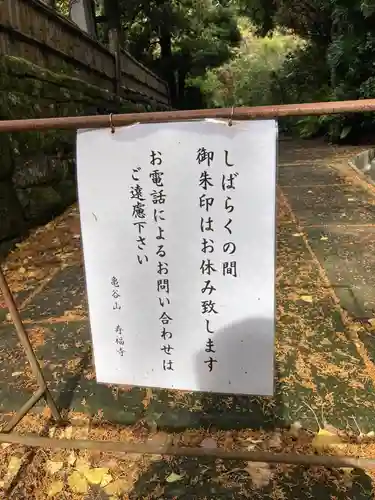 しばらくの間
御朱印はお休み致します
お電話によるお問い合わせは
ご遠慮下さい
亀谷山　寿福寺